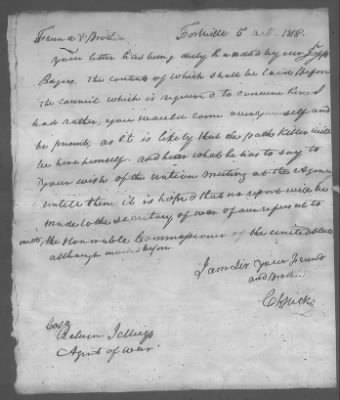 Friend & Brother Fortville 5 Oct. 1818.
Your letter has being duly handed by
the contents of which shall be laid Before
the Council which is required to convene here I
had rather, you would come over your self and
be present, as it is likely that the path Killer will
be here himself. and hear what he has to say to
your wish of the nation meeting at the Agency
untill then, it is hoped that no report will be
made to the Secretary of war of our refusal to
meet, the Honorable Commissioner of the united States
although before.
I am Sir your Friend
and Brother
Ch Hicks
Agent of War